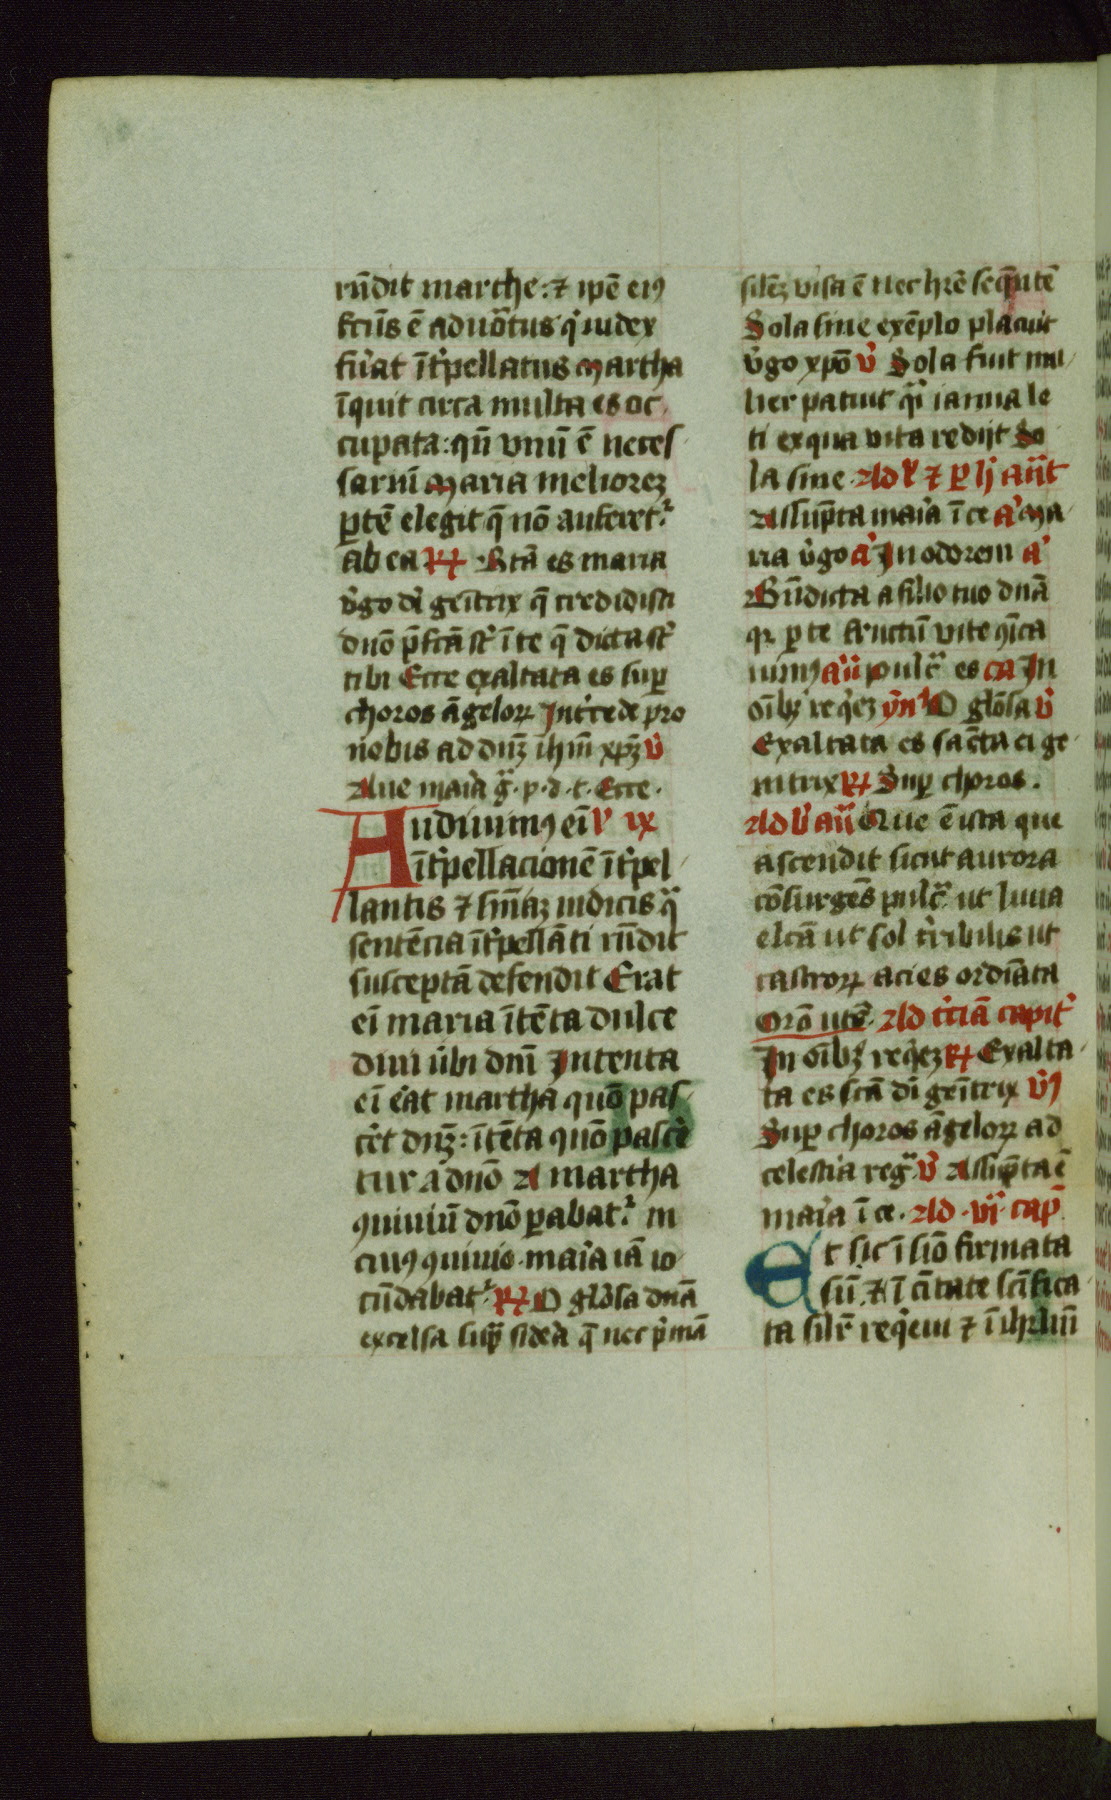 rn̄dit marthe: ⁊ ip̄e eiꝰ
fctūs ē aduo̅tus q̇ iudex
fu̓at īt̓pellatus Martha
īquit circa multa es oc
cupata: qn̄ vnū ē neces
sariū Maria meliorez
ꝑtē elegit q̄ nō auferet᷑
ab ea R Bt̄a es maria
v̓go di̓ gen̄trix q̄ credidisti
dn̄o ꝑfc̄a st̄ ī te q̄ dicta st̄
tibi Ecce exaltata es suꝑ
choros āgeloꝝ Int̓cede pro
nobis ad dn̄z ih̄m xp̄z v̓
Aue mar̓ia g̃ · p · d · t · Ecce ·
Audiuimꝰ ei̅ l̓ ix
īt̓pellacionē īt̓pel
lantis ⁊ sn̄iaz iudicis q̃
sentēcia īt̓pellāti rn̄dit
susceptā defendit Erat
ei̅ maria ītēta dulce
dini u̓bi dn̄i Intenta
ei̅ e̓at martha quō pas
c̓et dn̄z: ītēta quō pasc̓e
tur a dn̄o A martha
ꝯuiuiū dn̄o ꝑabat᷑ in
cuiꝰ ꝯuiuio mar̓ia iā io
cūdabat᷑ R O glo̓sa dn̄a
excelsa sup̄ side̓a q̄ nec p̓mā
silēz visa ē nec hr̄e seq̄ntē
Sola sine exēplo placuit
v̓go xp̄o v̓ Sola fuit mu
lier patuit q̃ ianua le
ti ex qua vita redijt So
la sine Ad l̓ ⁊ ꝑ hʼ an̄t
Assūpta mar̓ia ī ce a̓ Ma
ria v̓go a̓ In odorem a̓
Bn̄dicta a filio tuo dn̄a
qꝛ ꝑ te fructū vite ꝯīca
uimꝰ an̄ pulc̃ es ca In
oīb₃ req̓ez yn̓ O glo̓sa v̓
Exaltata es sac̄ta ei ge
nitrix R Suꝑ choros .
Ad b̓ an̄ Que ē ista que
ascendit sicut aurora
cōsurgēs pulc̃ ut luna
elcā ut sol t̓ribilis ut
castroꝝ acies ordīata
Orō ut s̓ · Ad t̓ciā capit̓
In oīb₃ req̓ez R Exalta
ta es sc̄a di̓ gen̄trix v̓ꝰ
Suꝑ choros āgeloꝝ ad
celestia reg̃ v̓ Assūpta ē
mar̓ia ī ce · Ad · vi̓ · cap̄
Et sic ī siō firmata
sū ⁊ ī c̄itate sc̄ifica
ta silr̄ req̓eui ⁊ ī ihrlm̄